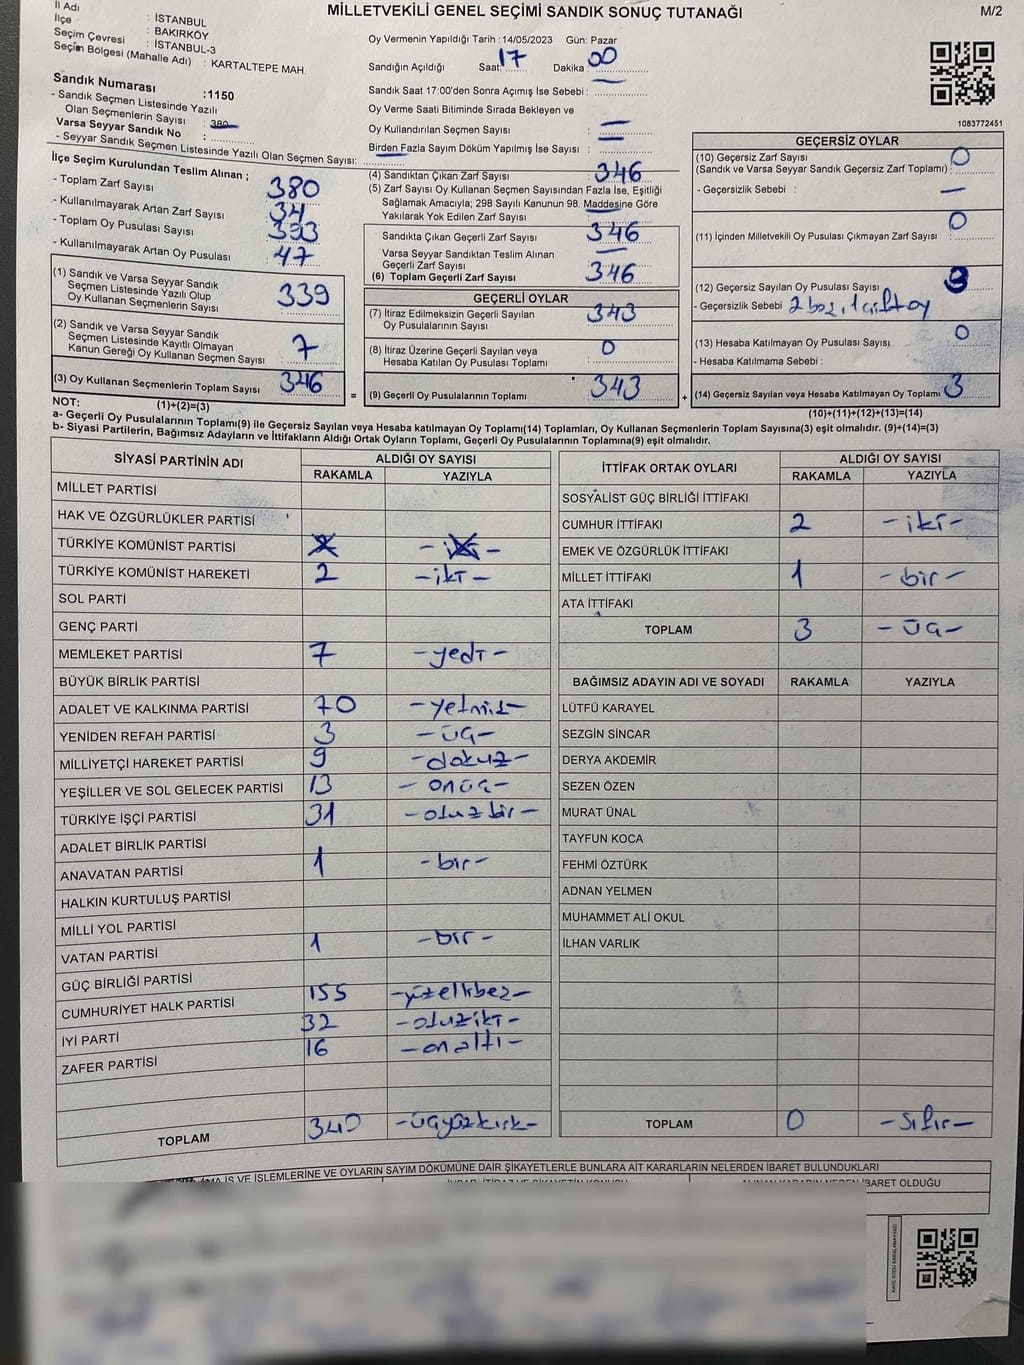 MİLLETVEKİLİ GENEL SEÇİMİ SANDIK SONUÇ TUTANAĞI
M/2
İl Adı : İSTANBUL
İlçe : BAKIRKÖY
Seçim Çevresi : İSTANBUL-3
Seçim Bölgesi (Mahalle Adı) : KARTALTEPE MAH.
Sandık Numarası :1150
- Sandık Seçmen Listesinde Yazılı
Olan Seçmenlerin Sayısı : 380
Varsa Seyyar Sandık No :
- Seyyar Sandık Seçmen Listesinde Yazılı Olan Seçmen Sayısı:
Oy Vermenin Yapıldığı Tarih :14/05/2023 Gün: Pazar
Sandığın Açıldığı Saat: 17 Dakika : 00
Sandık Saat 17:00'den Sonra Açılmış İse Sebebi : —
Oy Verme Saati Bitiminde Sırada Bekleyen ve
Oy Kullandırılan Seçmen Sayısı : —
Birden Fazla Sayım Döküm Yapılmış İse Sayısı : —
1083772451
İlçe Seçim Kurulundan Teslim Alınan ;
- Toplam Zarf Sayısı : 380
- Kullanılmayarak Artan Zarf Sayısı : 34
- Toplam Oy Pusulası Sayısı : 393
- Kullanılmayarak Artan Oy Pusulası : 47
(1) Sandık ve Varsa Seyyar Sandık
Seçmen Listesinde Yazılı Olup
Oy Kullanan Seçmenlerin Sayısı : 339
(2) Sandık ve Varsa Seyyar Sandık
Seçmen Listesinde Kayıtlı Olmayan
Kanun Gereği Oy Kullanan Seçmen Sayısı : 7
(3) Oy Kullanan Seçmenlerin Toplam Sayısı : 346
(1)+(2)=(3)
(4) Sandıktan Çıkan Zarf Sayısı : 346
(5) Zarf Sayısı Oy Kullanan Seçmen Sayısından Fazla İse, Eşitliği
Sağlamak Amacıyla; 298 Sayılı Kanunun 98. Maddesine Göre
Yakılarak Yok Edilen Zarf Sayısı : —
Sandıkta Çıkan Geçerli Zarf Sayısı : 346
Varsa Seyyar Sandıktan Teslim Alınan
Geçerli Zarf Sayısı : —
(6) Toplam Geçerli Zarf Sayısı : 346
GEÇERLİ OYLAR
(7) İtiraz Edilmeksizin Geçerli Sayılan
Oy Pusulalarının Sayısı : 343
(8) İtiraz Üzerine Geçerli Sayılan veya
Hesaba Katılan Oy Pusulası Toplamı : 0
= (9) Geçerli Oy Pusulalarının Toplamı : 343 +
GEÇERSİZ OYLAR
(10) Geçersiz Zarf Sayısı
(Sandık ve Varsa Seyyar Sandık Geçersiz Zarf Toplamı) : 0
- Geçersizlik Sebebi : —
(11) İçinden Milletvekili Oy Pusulası Çıkmayan Zarf Sayısı : 0
(12) Geçersiz Sayılan Oy Pusulası Sayısı : 3
- Geçersizlik Sebebi : 2 boş, 1 çift oy
(13) Hesaba Katılmayan Oy Pusulası Sayısı : 0
- Hesaba Katılmama Sebebi :
(14) Geçersiz Sayılan veya Hesaba Katılmayan Oy Toplamı : 3
(10)+(11)+(12)+(13)=(14)
NOT:
a- Geçerli Oy Pusulalarının Toplamı(9) ile Geçersiz Sayılan veya Hesaba Katılmayan Oy Toplamı(14) Toplamları, Oy Kullanan Seçmenlerin Toplam Sayısına(3) eşit olmalıdır. (9)+(14)=(3)
b- Siyasi Partilerin, Bağımsız Adayların ve İttifakların Aldığı Ortak Oyların Toplamı, Geçerli Oy Pusulalarının Toplamına(9) eşit olmalıdır.
SİYASİ PARTİNİN ADI ALDIĞI OY SAYISI
RAKAMLA YAZIYLA
MİLLET PARTİSİ
HAK VE ÖZGÜRLÜKLER PARTİSİ
TÜRKİYE KOMÜNİST PARTİSİ 2 - iki -
TÜRKİYE KOMÜNİST HAREKETİ 2 - iki -
SOL PARTİ
GENÇ PARTİ
MEMLEKET PARTİSİ 7 - yedi -
BÜYÜK BİRLİK PARTİSİ
ADALET VE KALKINMA PARTİSİ 70 - yetmiş -
YENİDEN REFAH PARTİSİ 3 - üç -
MİLLİYETÇİ HAREKET PARTİSİ 9 - dokuz -
YEŞİLLER VE SOL GELECEK PARTİSİ 13 - onüç -
TÜRKİYE İŞÇİ PARTİSİ 31 - otuzbir -
ADALET BİRLİK PARTİSİ
ANAVATAN PARTİSİ 1 - bir -
HALKIN KURTULUŞ PARTİSİ
MİLLİ YOL PARTİSİ
VATAN PARTİSİ 1 - bir -
GÜÇ BİRLİĞİ PARTİSİ
CUMHURİYET HALK PARTİSİ 155 - yüzellibeş -
İYİ PARTİ 32 - otuziki -
ZAFER PARTİSİ 16 - onaltı -
TOPLAM 340 - üçyüzkırk -
İTTİFAK ORTAK OYLARI ALDIĞI OY SAYISI
RAKAMLA YAZIYLA
SOSYALİST GÜÇ BİRLİĞİ İTTİFAKI
CUMHUR İTTİFAKI 2 - iki -
EMEK VE ÖZGÜRLÜK İTTİFAKI
MİLLET İTTİFAKI 1 - bir -
ATA İTTİFAKI
TOPLAM 3 - üç -
BAĞIMSIZ ADAYIN ADI VE SOYADI RAKAMLA YAZIYLA
LÜTFÜ KARAYEL
SEZGİN SİNCAR
DERYA AKDEMİR
SEZEN ÖZEN
MURAT ÜNAL
TAYFUN KOCA
FEHMİ ÖZTÜRK
ADNAN YELMEN
MUHAMMET ALİ OKUL
İLHAN VARLIK
TOPLAM 0 - sıfır -
İŞ VE İŞLEMLERİNE VE OYLARIN SAYIM DÖKÜMÜNE DAİR ŞİKAYETLERLE BUNLARA AİT KARARLARIN NELERDEN İBARET BULUNDUKLARI
İBARET OLDUĞU